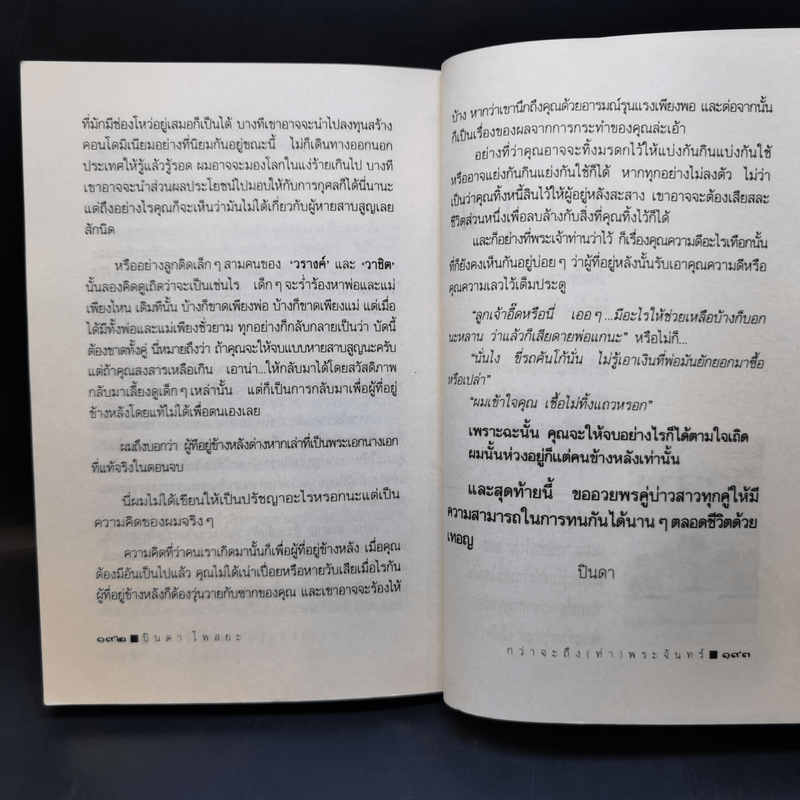 ที่มักมีช่องโหว่อยู่เสมอก็เป็นได้ บางทีเขาอาจจะนำไปลงทุนสร้าง
คอนโดมิเนียมอย่างที่นิยมกันอยู่ขณะนี้ ไม่ก็เดินทางออกนอก
ประเทศให้รู้แล้วรู้รอด ผมอาจจะมองโลกในแง่ร้ายเกินไป บางที
เขาอาจจะนำส่วนผลประโยชน์ไปมอบให้กับการกุศลก็ได้นี่นานะ
แต่ถึงอย่างไรคุณก็จะเห็นว่ามันไม่ได้เกี่ยวกับผู้หายสาบสูญเลย
สักนิด
หรืออย่างลูกติดเล็กๆ สามคนของ ‘วรางค์’ และ ‘วาชิต’
นั้นลองคิดดูเถิดว่าจะเป็นเช่นไร เด็กๆ จะร่ำร้องหาพ่อและแม่
เพียงไหน เดิมทีนั้น บ้างก็ขาดเพียงพ่อ บ้างก็ขาดเพียงแม่ แต่เมื่อ
ได้มีทั้งพ่อและแม่เพียงชั่วยาม ทุกอย่างก็กลับกลายเป็นว่า บัดนี้
ต้องขาดทั้งคู่ นี่หมายถึงว่า ถ้าคุณจะให้จบแบบหายสาบสูญนะครับ
แต่ถ้าคุณสงสารเหลือเกิน เอาน่า...ให้กลับมาได้โดยสวัสดิภาพ
กลับมาเลี้ยงดูเด็กๆ เหล่านั้น แต่ก็เป็นการกลับมาเพื่อผู้ที่อยู่
ข้างหลังโดยแท้ไม่ได้เพื่อตนเองเลย
ผมถึงบอกว่า ผู้ที่อยู่ข้างหลังต่างหากเล่าที่เป็นพระเอกนางเอก
ที่แท้จริงในตอนจบ
นี่ผมไม่ได้เขียนให้เป็นปรัชญาอะไรหรอกนะแต่เป็น
ความคิดของผมจริงๆ
ความคิดที่ว่าคนเราเกิดมานั้นก็เพื่อผู้ที่อยู่ข้างหลัง เมื่อคุณ
ต้องมีอันเป็นไปแล้ว คุณไม่ได้เน่าเปื่อยหรือหายวับเสียเมื่อไรกัน
ผู้ที่อยู่ข้างหลังก็ต้องวุ่นวายกับซากของคุณ และเขาอาจจะร้องไห้
๑๙๒ ■ ปินดา โพสยะ
บ้าง หากว่าเขานึกถึงคุณด้วยอารมณ์รุนแรงเพียงพอ และต่อจากนั้น
ก็เป็นเรื่องของผลจากการกระทำของคุณล่ะเอ้า
อย่างที่ว่าคุณอาจจะทิ้งมรดกไว้ให้แบ่งกันกินแบ่งกันใช้
หรืออาจแย่งกันกินแย่งกันใช้ก็ได้ หากทุกอย่างไม่ลงตัว ไม่ว่า
เป็นว่าคุณทิ้งหนี้สินไว้ให้ผู้อยู่หลังสะสาง เขาอาจจะต้องเสียสละ
ชีวิตส่วนหนึ่งเพื่อลบล้างกับสิ่งที่คุณทิ้งไว้ก็ได้
และก็อย่างที่พระเจ้าท่านว่าไว้ ก็เรื่องคุณความดีอะไรเทือกนั้น
ที่ก็ยังคงเห็นกันอยู่บ่อยๆ ว่าผู้ที่อยู่หลังนั้นรับเอาคุณความดีหรือ
คุณความเลวไว้เต็มประตู
“ลูกเจ้าอี๊ดหรือนี่ เออๆ...มีอะไรให้ช่วยเหลือบ้างก็บอก
นะหลาน ว่าแล้วก็เสียดายพ่อแกนะ” หรือไม่ก็...
“นั่นไง ขี่รถคันโก้นั่น ไม่รู้เอาเงินที่พ่อมันยักยอกมาซื้อ
หรือเปล่า”
“ผมเข้าใจคุณ เชื้อไม่ทิ้งแถวหรอก”
เพราะฉะนั้น คุณจะให้จบอย่างไรก็ได้ตามใจเถิด
ผมนั้นห่วงอยู่ก็แต่คนข้างหลังเท่านั้น
และสุดท้ายนี้ ขออวยพรคู่บ่าวสาวทุกคู่ให้มี
ความสามารถในการทนกันได้นานๆ ตลอดชีวิตด้วย
เทอญ
ปินดา
กว่าจะถึง(ท่า)พระจันทร์ ■ ๑๙๓